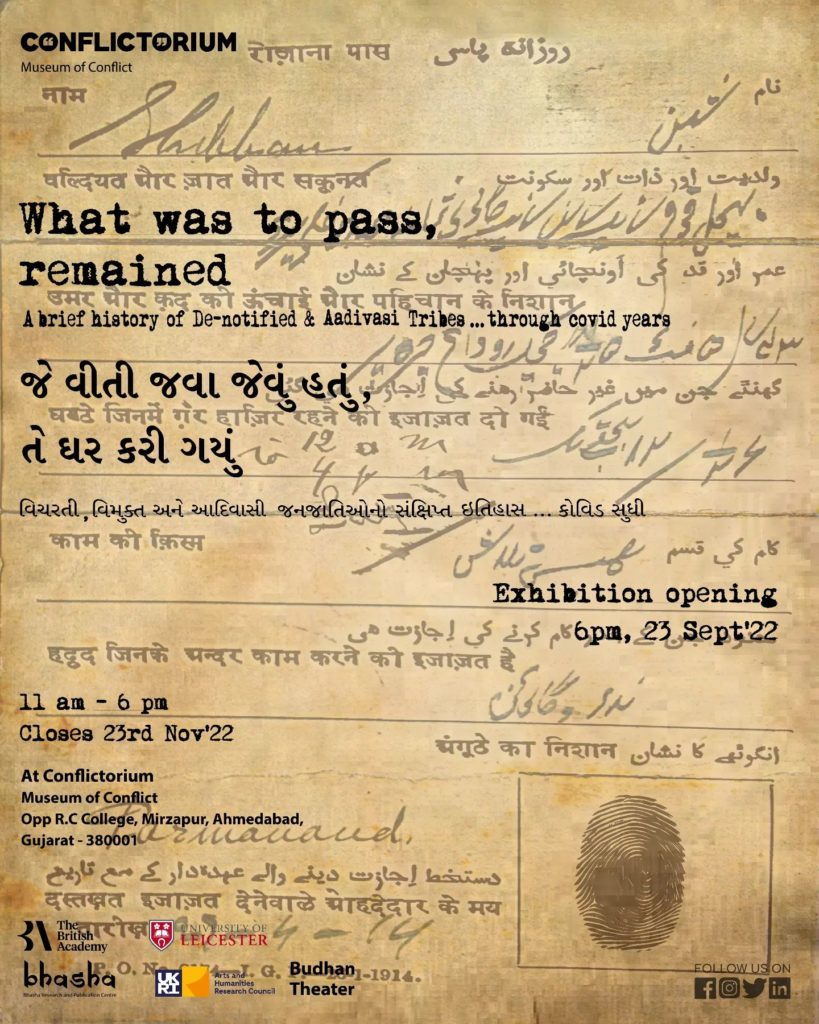 CONFLICTORIUM
Museum of Conflict
रोज़ाना पास روزانه پاسی
नाम نام
Shibban شبن
वल्दियत और ज़ात और सकूनत ولدیت اور ذات اور سکونت
What was to pass,
remained
عمر اور قد کی اُونچائی اور پہنچان کے نشان
उमर और क़द की ऊंचाई और पहिचान के निशान
A brief history of De-notified & Aadivasi Tribes ... through covid years
જે વીતી જવા જેવું હતું,
گھنٹے جن میں غیر حاضر رهنے کی اِجازت
घण्टे जिनमें ग़ैर हाज़िर रहने की इजाज़त दी गई
તે ઘર કરી ગયું
12
વિચરતી, વિમુક્ત અને આદિવાસી જનજાતિઓનો સંક્ષિપ્ત ઇતિહાસ ... કોવિડ સુધી
काम की क़िस्म کام کي قسم
Exhibition opening
6pm, 23 Sept'22
کام کرنے کی اِجازت هی
हद्दद जिनके अन्दर काम करने की इजाज़त है
11 am - 6 pm
Closes 23rd Nov'22
अंगूठे का निशान انگوٹھے کا نشان
At Conflictorium
Museum of Conflict
Opp R.C College, Mirzapur, Ahmedabad,
Gujarat - 380001
Parmanand.
دستخط اِجازت دینے والے عہدہ‌دار کے مع تاریخ
दस्तख़त इजाज़त देनेवाले ओहदेदार के मय
तारीख़
4-14
The British Academy
UNIVERSITY OF LEICESTER
bhasha
Bhasha Research and Publication Centre
UKRI
Arts and Humanities Research Council
Budhan Theater
P. O. No. I. G. -1-1914.
FOLLOW US ON